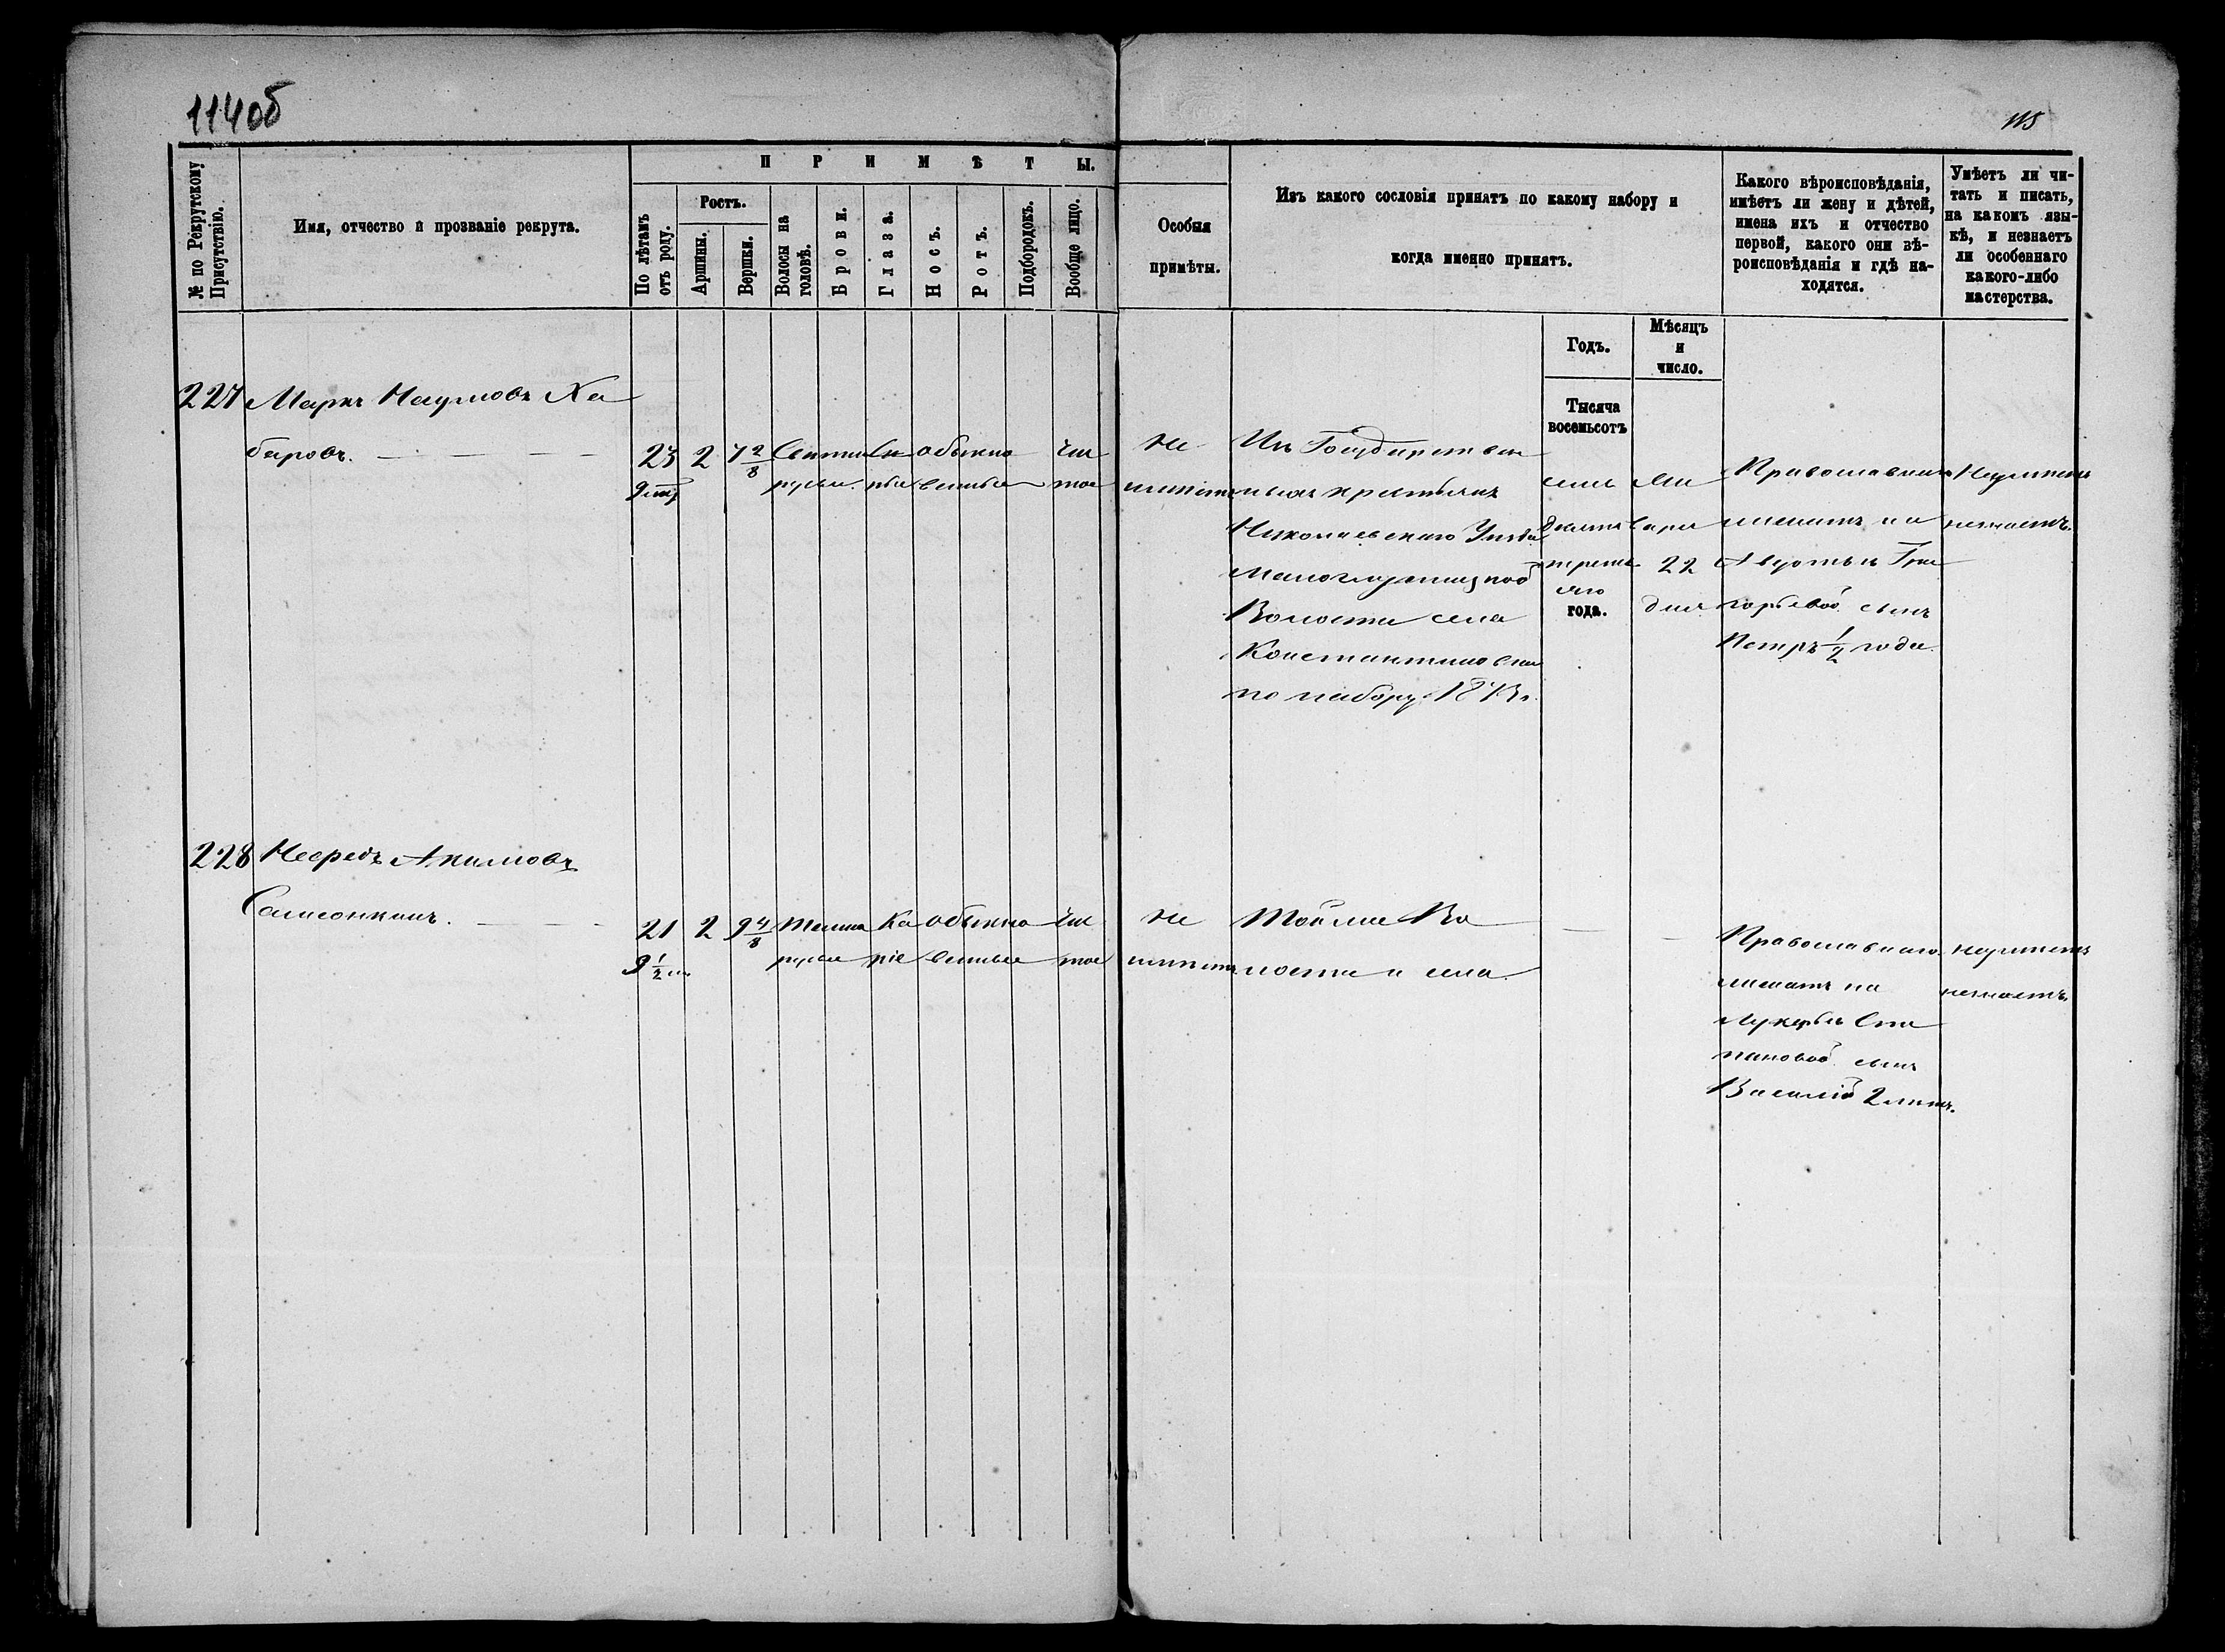 114об
115
№ по Рекрутскому Присутствію.
Имя, отчество и прозваніе рекрута.
ПРИМѢТЫ.
По лѣтамъ отъ роду.
Ростъ.
Аршины.
Вершки.
Волосы на головѣ.
Брови.
Глаза.
Носъ.
Ротъ.
Подбородокъ.
Вообще лицо.
Особыя
примѣты.
Изъ какого сословія принятъ по какому набору и
когда именно принятъ.
Годъ.
Мѣсяцъ
и
число.
Тысяча
восемьсотъ
Какого вѣроисповѣданія,
имѣетъ ли жену и дѣтей,
имена ихъ и отчество
первой, какого они вѣ-
роисповѣданія и гдѣ на-
ходятся.
Умѣетъ ли чи-
тать и писать,
на какомъ язы-
кѣ, и незнаетъ
ли особеннаго
какого-либо
мастерства.
227 Маркъ Наумовъ Ха
баровъ.
23 2 7 2/8 Светло Се обыкно чис
русые рые венные тое
Не
имеетъ
Изъ Государствен
ныхъ крестьянъ
Николаевскаго Уезда
Малоглушицкой
Волости села
Константиновки
по набору 1873 г.
семь
десятъ
треть
яго
года.
Ян
варя
22
дня
Православнаго
женатъ на
Авдотье Гри
горьевой сынъ
Петръ 1/2 года.
Неграмотенъ
незнаетъ.
228 Неередъ Акимовъ
Самсонкинъ.
21 2 9 4/8 Темно Ка обыкно чис
9 1/2 м. русые ріе венные тое
Не
имеетъ
Тойже Во
лости и села.
Православнаго
женатъ на
Лукерье Сте
пановой сынъ
Василій 2 летъ.
неграмотенъ
незнаетъ.